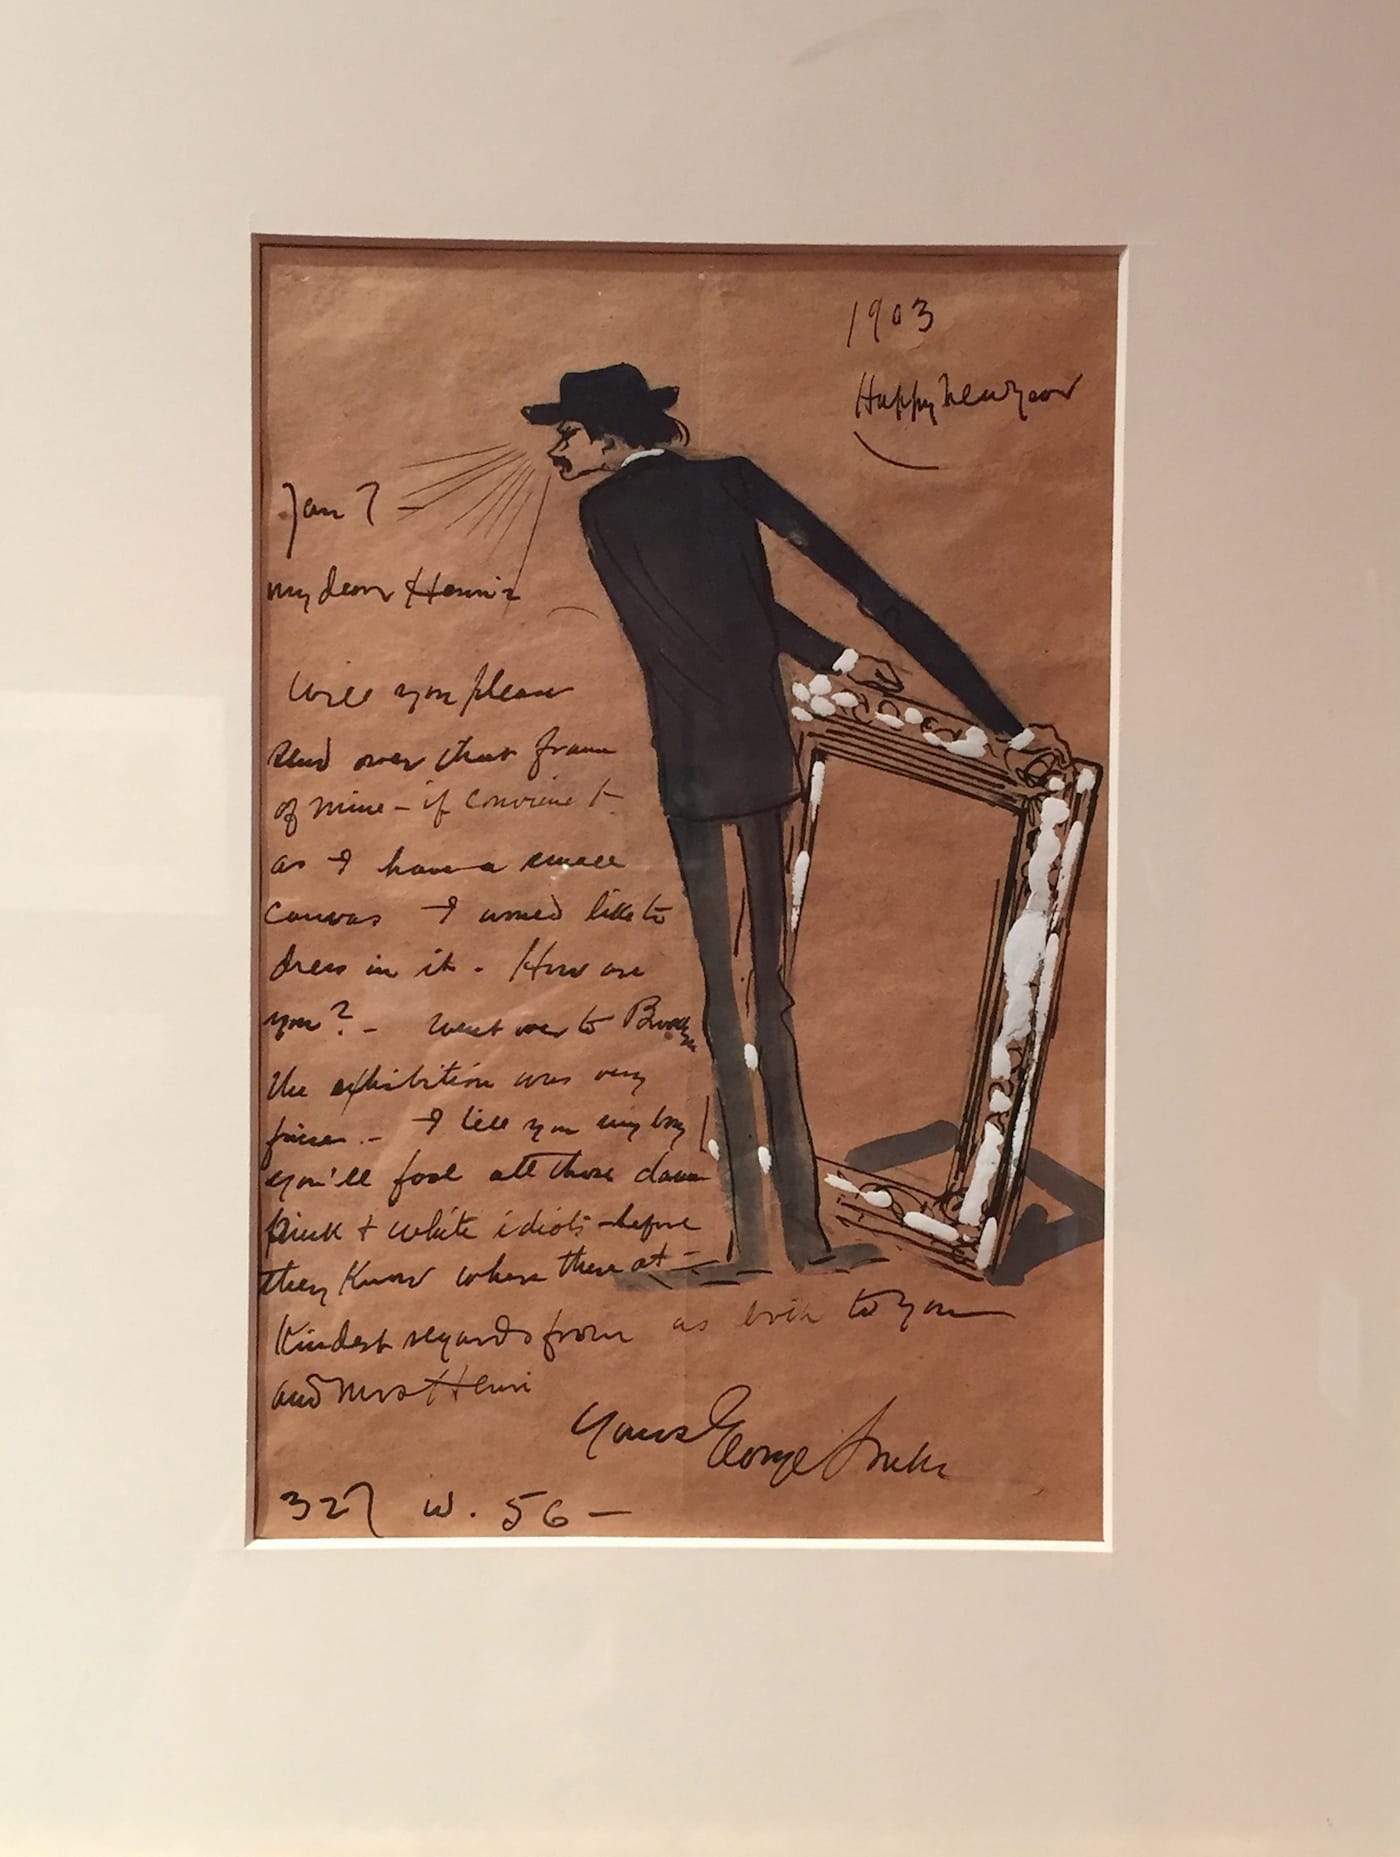 1903
Happy New Year
Jan 7 —
My dear Henri
Will you please
send over that frame
of mine – if convenient
as I have a small
canvas I would like to
dress in it. How are
you? – Went over to Brooklyn
the exhibition was very
fine. – I tell you my boy
you'll fool all those damn
pink + white idiots before
they know where there at –
Kindest regards from us both to you
and Mrs Henri
Yours George Luks
327 W. 56 —